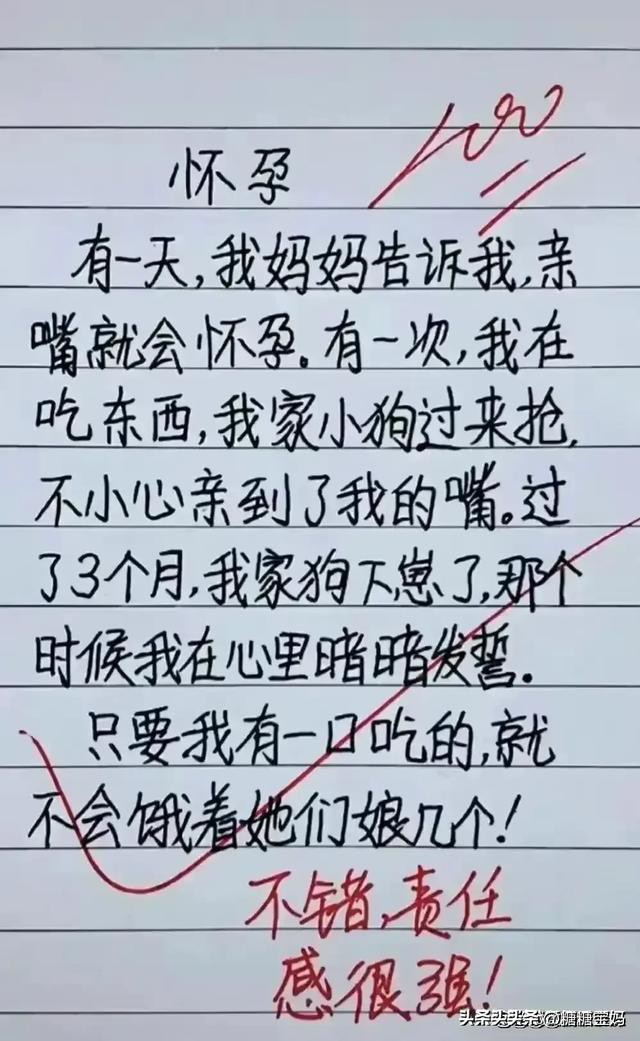 100
怀孕
有一天,我妈妈告诉我,亲
嘴就会怀孕。有一次,我在
吃东西,我家小狗过来抢,
不小心亲到了我的嘴。过
了3个月,我家狗下崽了,那个
时候我在心里暗暗发誓。
只要我有一口吃的,就
不会饿着她们娘几个!
不错,责任
感很强!
头条@糖糖宝妈